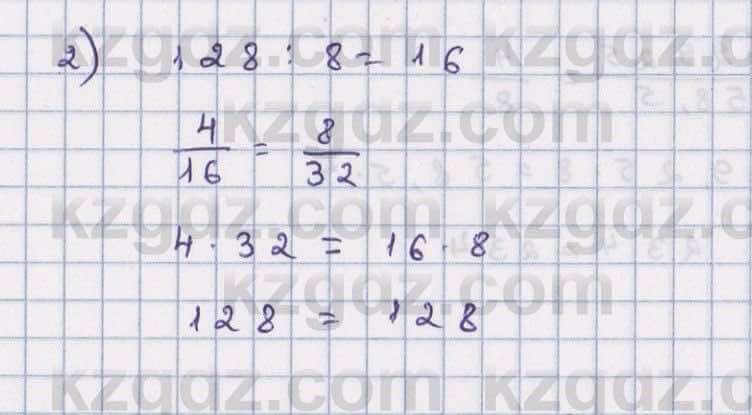 2) 128 : 8 = 16
4/16 = 8/32
4 · 32 = 16 · 8
128 = 128
kzgdz.com kzgdz.com
kzgdz.com
kzgdz.com kzgdz.com
kzgdz.com
kzgdz.com kzgdz.com